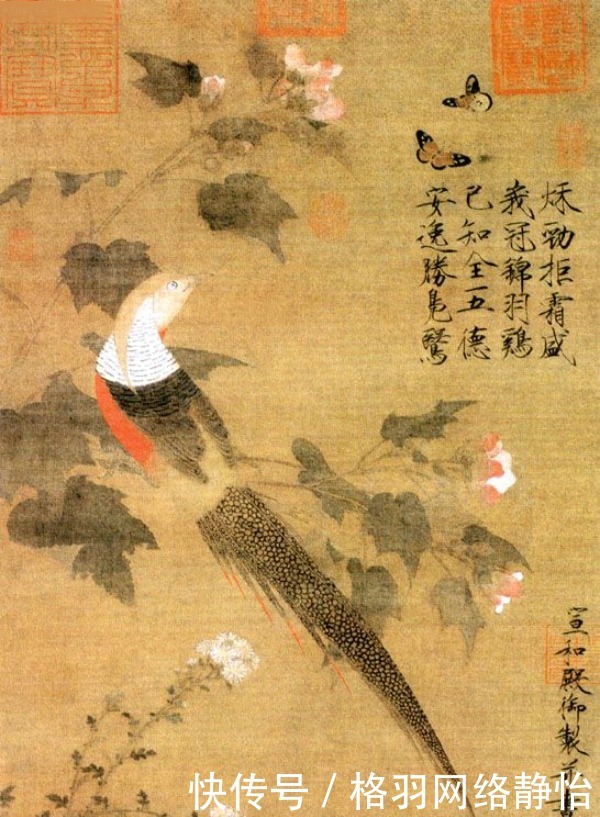 秌勁拒霜盛
峩冠錦羽鷄
已知全五德
安逸勝鳧鷖
宣和殿御製并書
快传号 / 格羽网络静怡